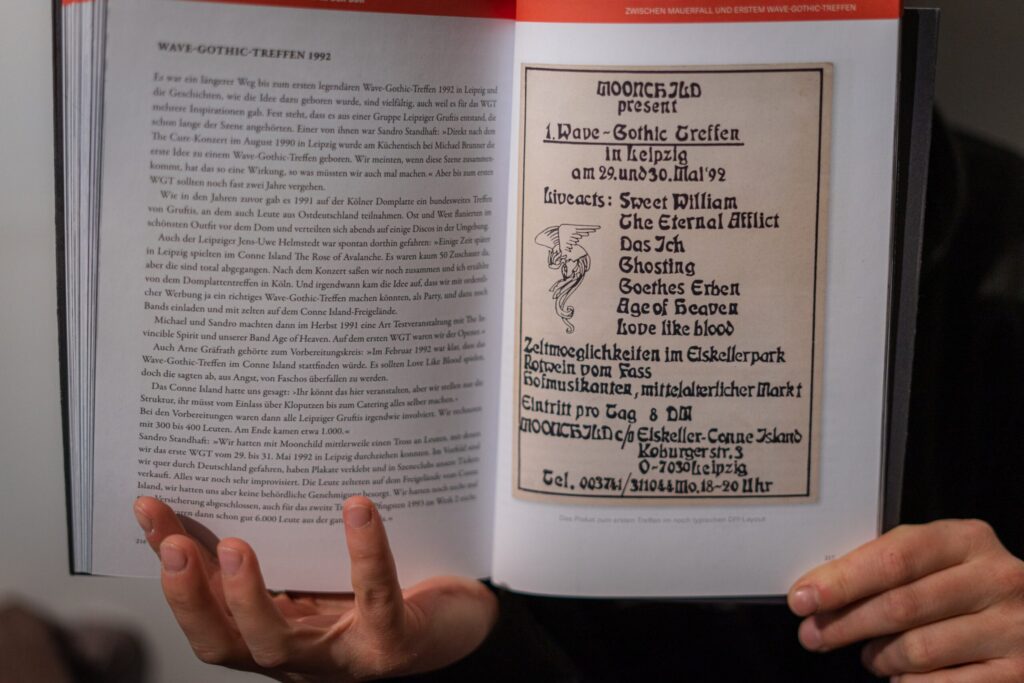 DER DDR
WAVE-GOTHIC-TREFFEN 1992
Es war ein längerer Weg bis zum ersten legendären Wave-Gothic-Treffen 1992 in Leipzig und
die Geschichten, wie die Idee dazu geboren wurde, sind vielfältig, auch weil es für das WGT
mehrere Inspirationen gab. Fest steht, dass es aus einer Gruppe Leipziger Gruftis entstand, die
schon lange der Szene angehörten. Einer von ihnen war Sandro Standhaft: »Direkt nach dem
The Cure-Konzert im August 1990 in Leipzig wurde am Küchentisch bei Michael Brunner die
erste Idee zu einem Wave-Gothic-Treffen geboren. Wir meinten, wenn diese Szene zusammen-
kommt, hat das so eine Wirkung, so was müssten wir auch mal machen.« Aber bis zum ersten
WGT sollten noch fast zwei Jahre vergehen.
Wie in den Jahren zuvor gab es 1991 auf der Kölner Domplatte ein bundesweites Treffen
von Gruftis, an dem auch Leute aus Ostdeutschland teilnahmen. Ost und West flanierten im
schönsten Outfit vor dem Dom und verteilten sich abends auf einige Discos in der Umgebung.
Auch der Leipziger Jens-Uwe Helmstedt war spontan dorthin gefahren: »Einige Zeit später
in Leipzig spielten im Conne Island The Rose of Avalanche. Es waren kaum 50 Zuschauer da,
aber die sind total abgegangen. Nach dem Konzert saßen wir noch zusammen und ich erzählte
von dem Domplattentreffen in Köln. Und irgendwann kam die Idee auf, dass wir mit ordentli-
cher Werbung ja ein richtiges Wave-Gothic-Treffen machen könnten, als Party, und dazu noch
Bands einladen und mit zelten auf dem Conne Island-Freigelände.
Michael und Sandro machten dann im Herbst 1991 eine Art Testveranstaltung mit The In-
vincible Spirit und unserer Band Age of Heaven. Auf dem ersten WGT waren wir der Opener.«
Auch Arne Gräfrath gehörte zum Vorbereitungskreis: »Im Februar 1992 war klar, dass das
Wave-Gothic-Treffen im Conne Island stattfinden würde. Es sollten Love Like Blood spielen,
doch die sagten ab, aus Angst, von Faschos überfallen zu werden.
Das Conne Island hatte uns gesagt: ›Ihr könnt das hier veranstalten, aber wir stellen nur die
Struktur, ihr müsst vom Einlass über Kloputzen bis zum Catering alles selber machen.‹
Bei den Vorbereitungen waren dann alle Leipziger Gruftis irgendwie involviert. Wir rechneten
mit 300 bis 400 Leuten. Am Ende kamen etwa 1.000.«
Sandro Standhaft: »Wir hatten mit Moonchild mittlerweile einen Tross an Leuten, mit denen
wir das erste WGT vom 29. bis 31. Mai 1992 in Leipzig durchziehen konnten. Im Vorfeld sind
wir quer durch Deutschland gefahren, haben Plakate verklebt und in Szeneclubs unsere Tickets
verkauft. Alles war noch sehr improvisiert. Die Leute zelteten auf dem Freigelände vom Conne
Island, wir hatten uns aber keine behördliche Genehmigung besorgt. Wir hatten noch nicht mal
Versicherung abgeschlossen, auch für das zweite 1993 im Werk 2 nicht.
waren dann schon gut 6.000 Leute aus der ganzen
216
ZWISCHEN MAUERFALL UND ERSTEM WAVE-GOTHIC-TREFFEN
MOONCHILD
present
1. Wave-Gothic Treffen
in Leipzig
am 29. und 30. Mai '92
Liveacts: Sweet William
The Eternal Afflict
Das Ich
Ghosting
Goethes Erben
Age of Heaven
Love like blood
Zeltmoeglichkeiten im Eiskellerpark
Rotwein vom Fass
Hofmusikanten, mittelalterlicher Markt
Eintritt pro Tag 8 DM
MOONCHILD c/o Eiskeller-Conne Island
Koburger str. 3
O-7030 Leipzig
Tel. 003741/311044 Mo. 18-20 Uhr
Das Plakat zum ersten Treffen im noch typischen DIY-Layout
217